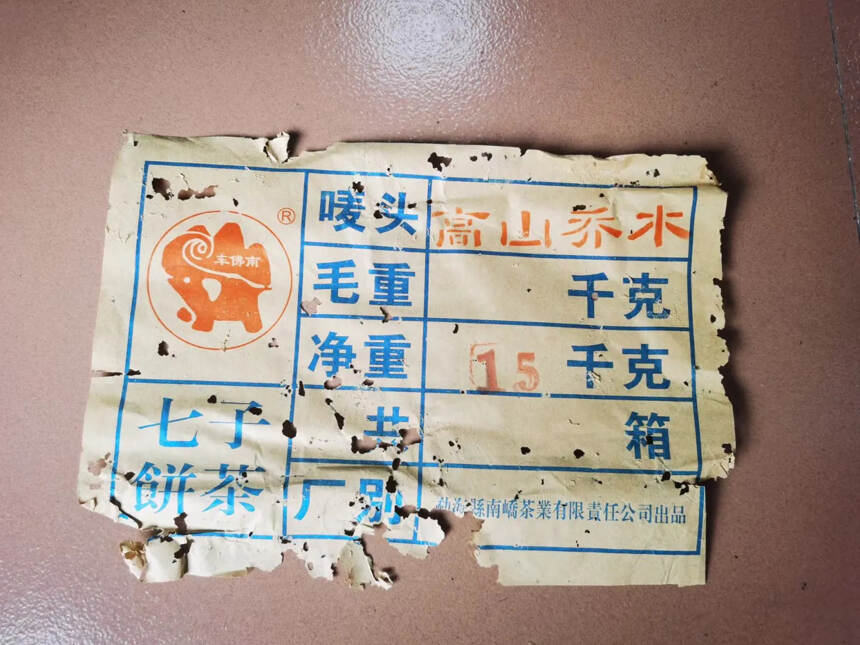 ®
车佛南
唛头 高山乔木
毛重 千克
净重 15 千克
共 箱
七子
餅茶
厂别 勐海縣南嶠茶業有限責任公司出品